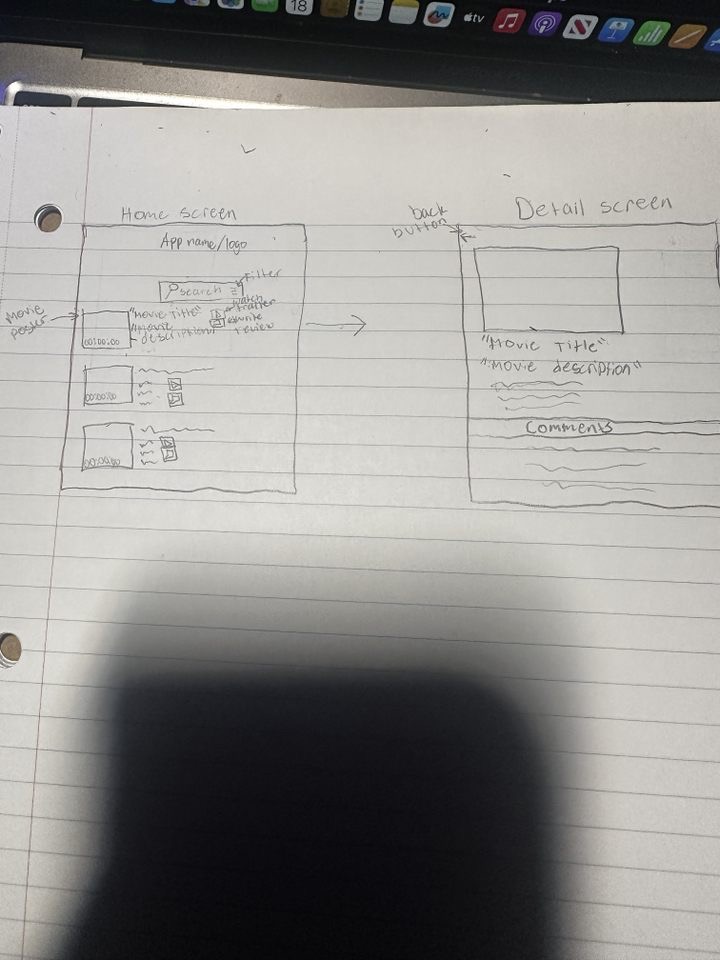 18
tv
Home screen
App name/logo
Filter
search
Movie
poster
"Movie Title"
"Movie
description"
watch
trailer
write
review
00:00:00
00:00:00
00:00:00
back
button
Detail screen
"Movie Title"
"Movie description"
Comments